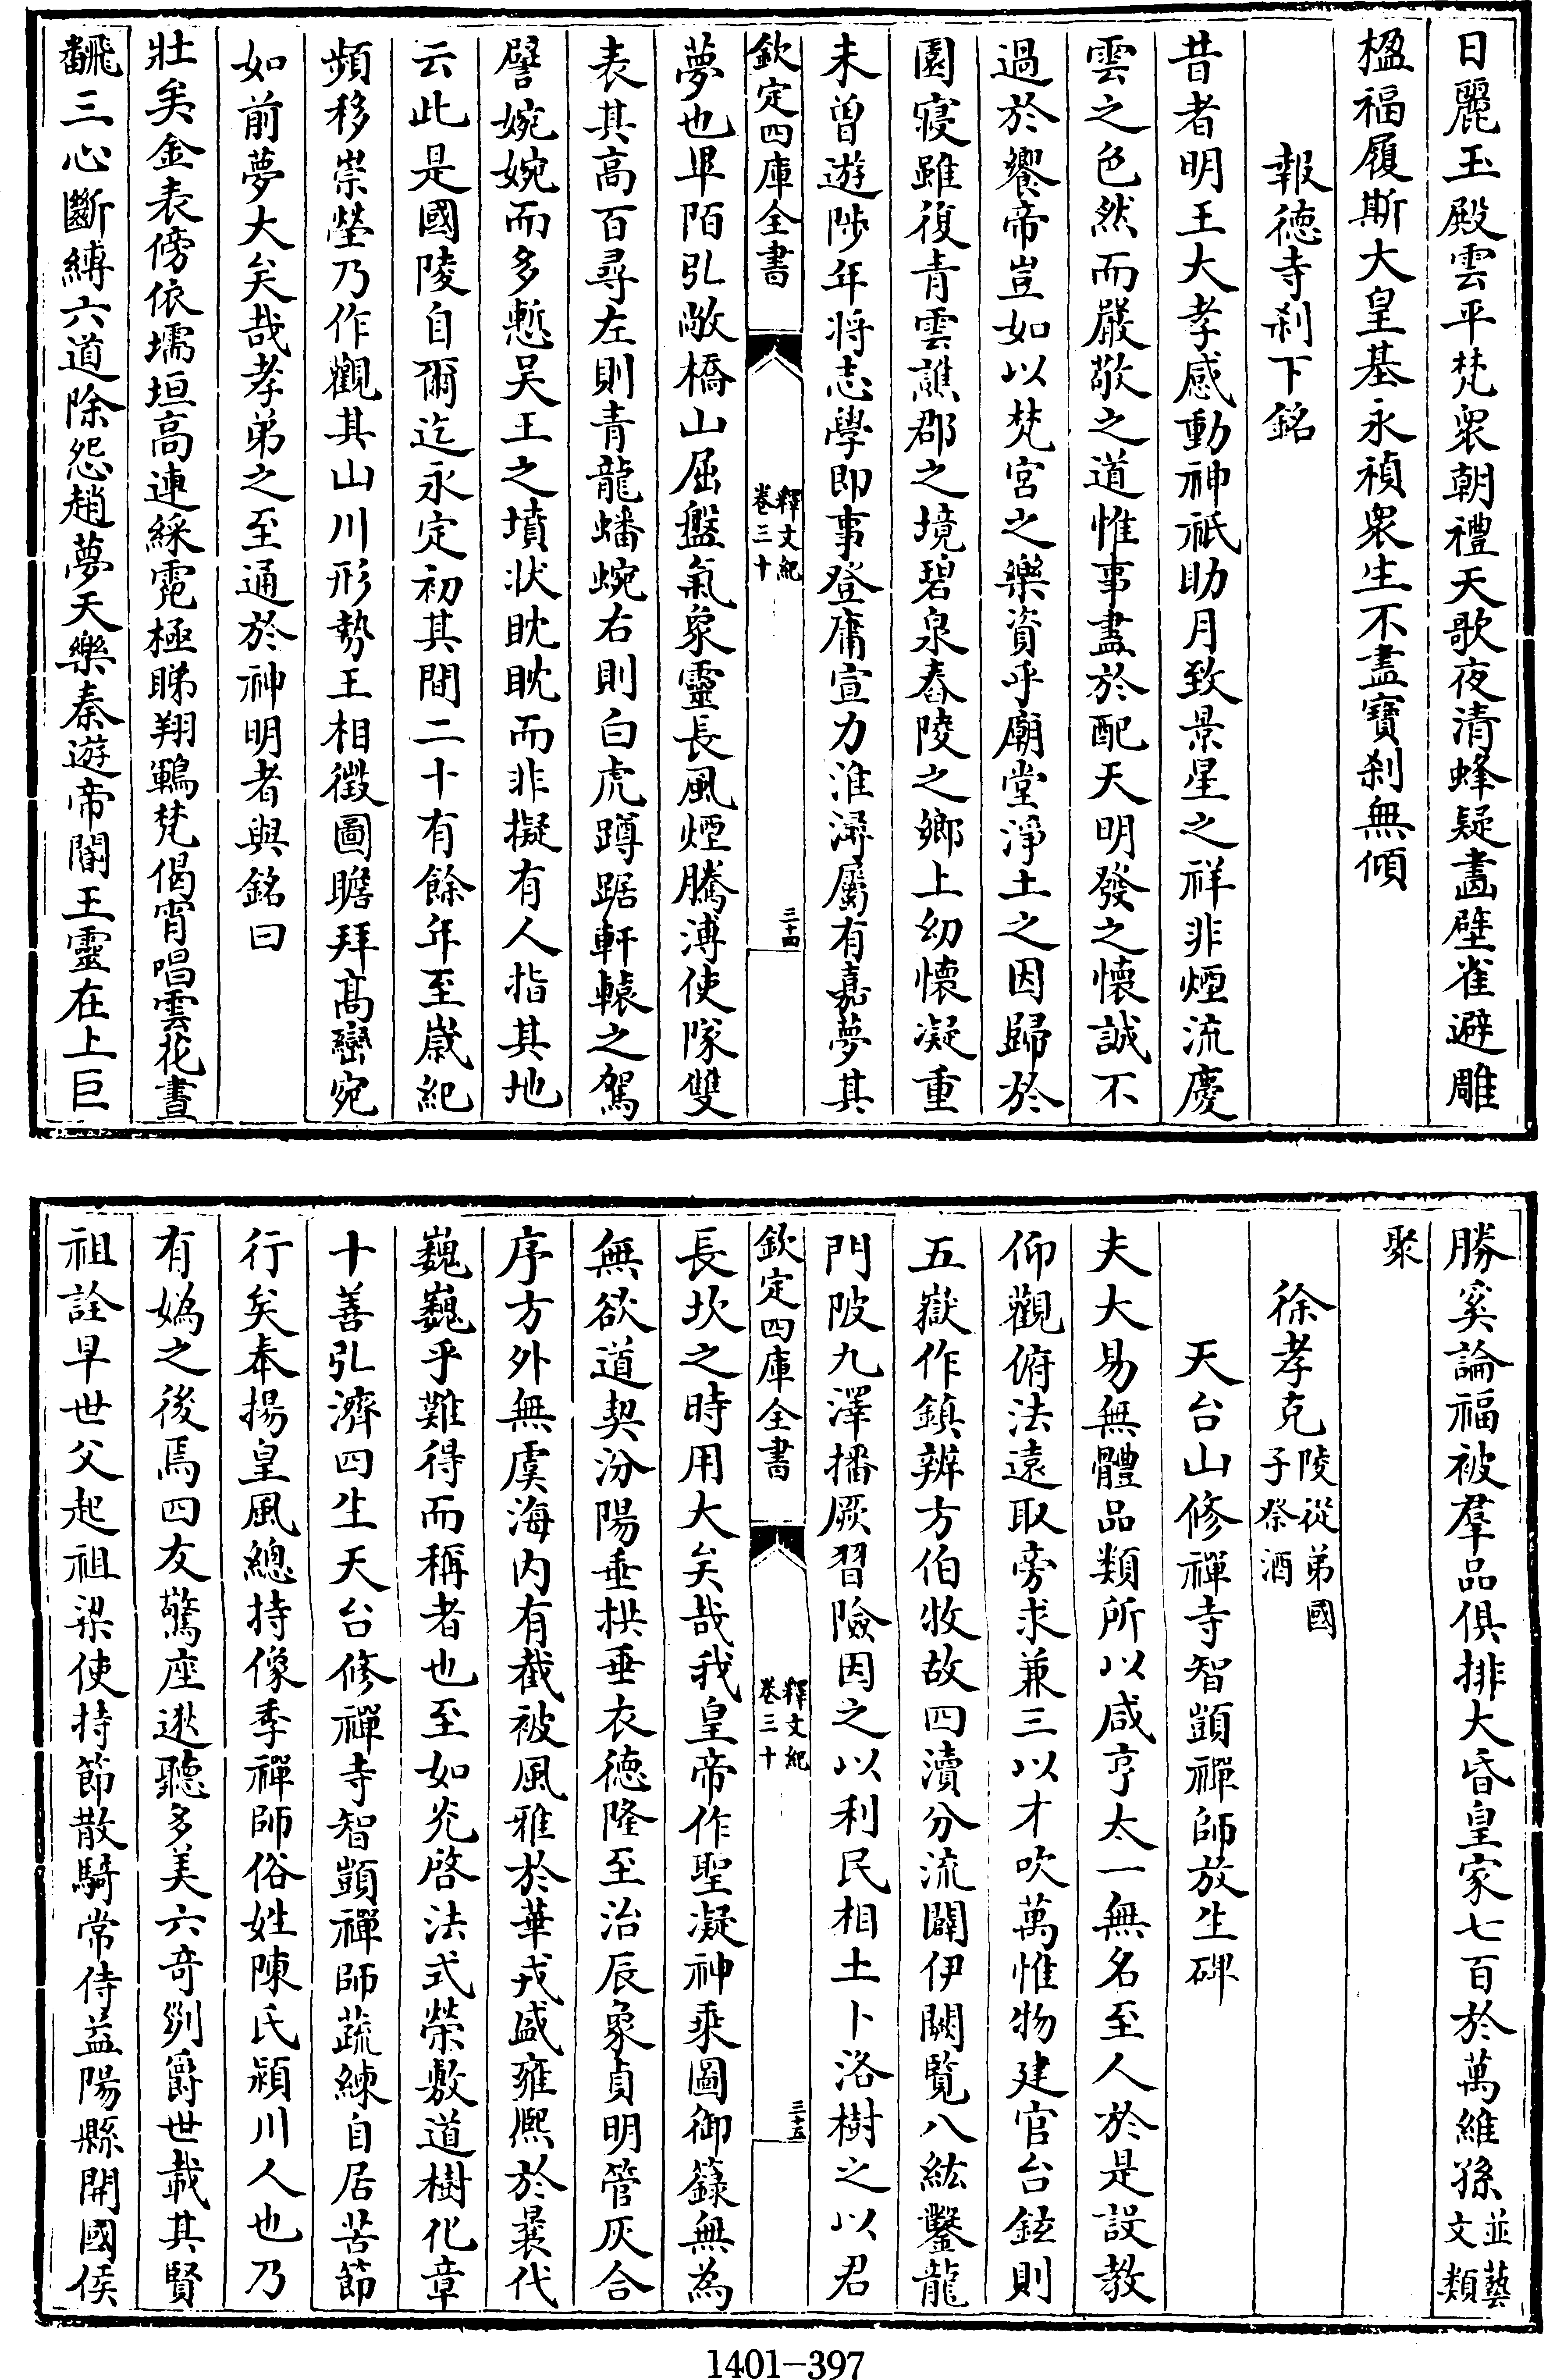 日麗玉殿雲平梵衆朝禮天歌夜清蜂疑畫壁雀避雕
楹福履斯大皇基永禎衆生不盡寶刹無傾
報德寺刹下銘
昔者明王大孝感動神祇助月致景星之祥非煙流慶
雲之色然而嚴敬之道惟事盡於配天明發之懷誠不
過於饗帝豈如以梵宮之樂資乎廟堂淨土之因歸於
園寢雖復青雲譙郡之境碧泉舂陵之鄉上幼懷凝重
未曾遊陟年將志學即事登庸宣力淮潯屬有嘉夢其
欽定四庫全書
釋文紀
卷三十
三十四
夢也毕陌弘敞橋山屈盤氣象靈長風煙騰溥使隊雙
表其高百尋左則青龍蟠蜿右則白虎蹲踞軒轅之駕
譬婉婉而多慙吴王之墳狀眈眈而非擬有人指其地
云此是國陵自爾迄永定初其間二十有餘年至嵗紀
頻移崇塋乃作觀其山川形勢王相徵圖瞻拜髙巒宛
如前夢大矣哉孝弟之至通於神明者與銘曰
壯矣金表傍依壖垣高連綵霓極睇翔鶤梵偈宵唱雲花晝
飜三心斷縛六道除怨趙夢天樂秦遊帝閽王靈在上巨
勝奚論福被羣品俱排大昏皇家七百於萬維孫並藝
文類
聚
徐孝克陵從弟國
子祭酒
天台山修禪寺智顗禪師放生碑
夫大易無體品類所以咸亨太一無名至人於是設教
仰觀俯法遠取旁求兼三以才吹萬惟物建官台鉉則
五嶽作鎮辨方伯牧故四瀆分流闢伊闕覽八紘鑿龍
門陂九澤播厥習險因之以利民相土卜洛樹之以君
欽定四庫全書
釋文紀
卷三十
三十五
長坎之時用大矣哉我皇帝作聖凝神乘圖御籙無為
無欲道契汾陽垂栱垂衣德隆至治辰象貞明管灰合
序方外無虞海内有截被風雅於華戎盛雍熙於曩代
巍巍乎難得而稱者也至如光啓法式榮敷道樹化章
十善弘濟四生天台修禪寺智顗禪師蔬練自居苦節
行矣奉揚皇風總持像季禪師俗姓陳氏潁川人也乃
有媯之後焉四友驚座逖聽多美六奇列爵世載其賢
祖詮早世父起祖梁使持節散騎常侍益陽縣開國侯
1401-397